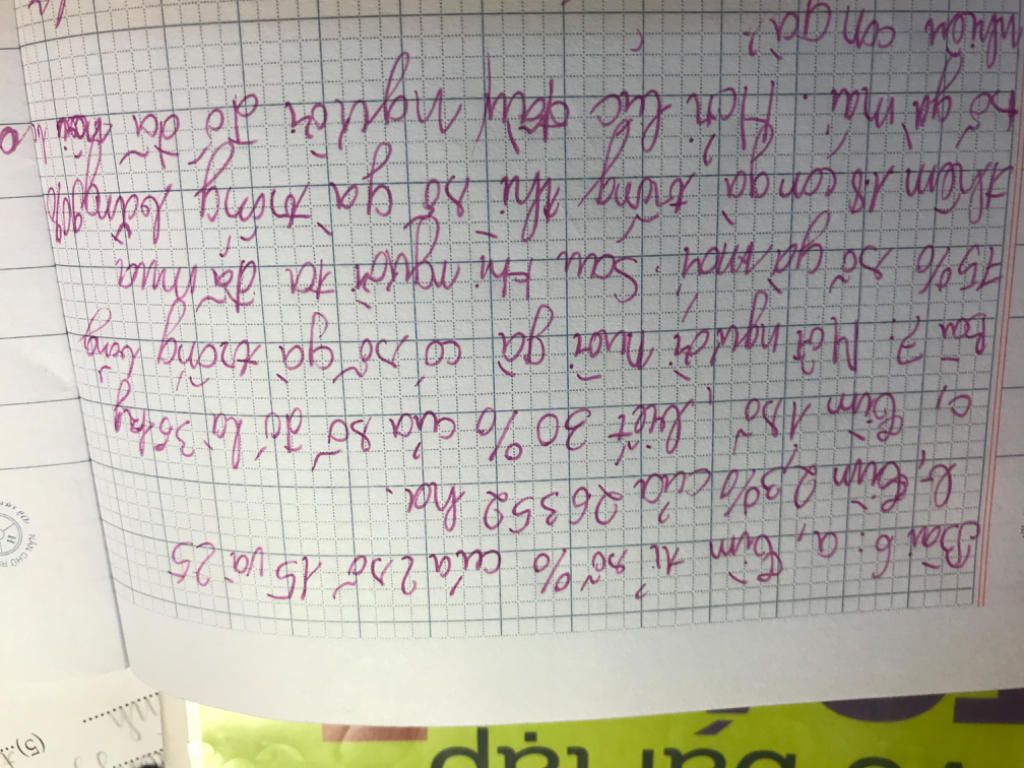 Bài 6: a, Tìm tỉ số % của 2 số 15 và 25
b, Tìm 2,3% của 26352 ha.
c, Tìm 1 số, biết 30% của số đó là 36kg
Bài 7: Một người nuôi gà có số gà trống bằng
75% số gà mái. Sau khi người ta đã mua
thêm 18 con gà trống thì số gà trống bằng 90%
số gà mái. Hỏi lúc đầu người đó đã nuôi
nhiêu con gà?
(5)